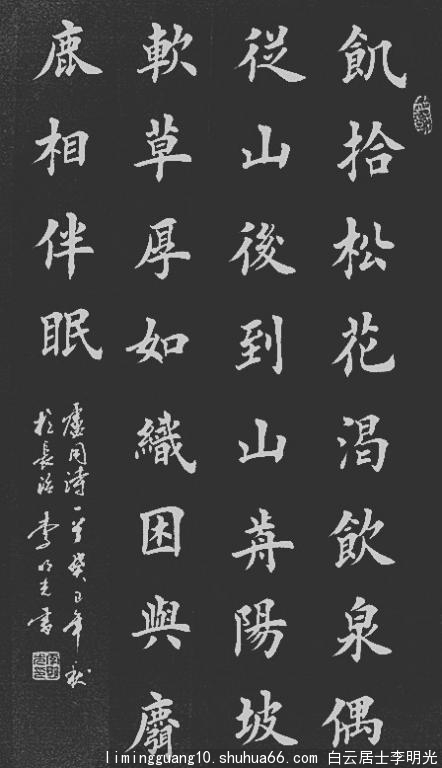 飢拾松花渴飲泉偶
從山後到山前陽坡
軟草厚如織困與麛
鹿相伴眠
盧同詩一首癸巳年秋
於長治李明光書
limingguang10.shuhua66.com 白云居士李明光